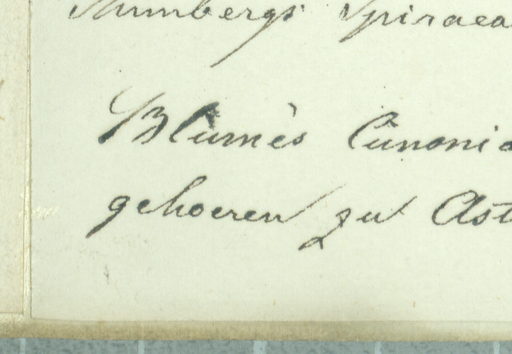 Thunbergs Spiraea
Blume's Cunonia
gehoeren zu Ast